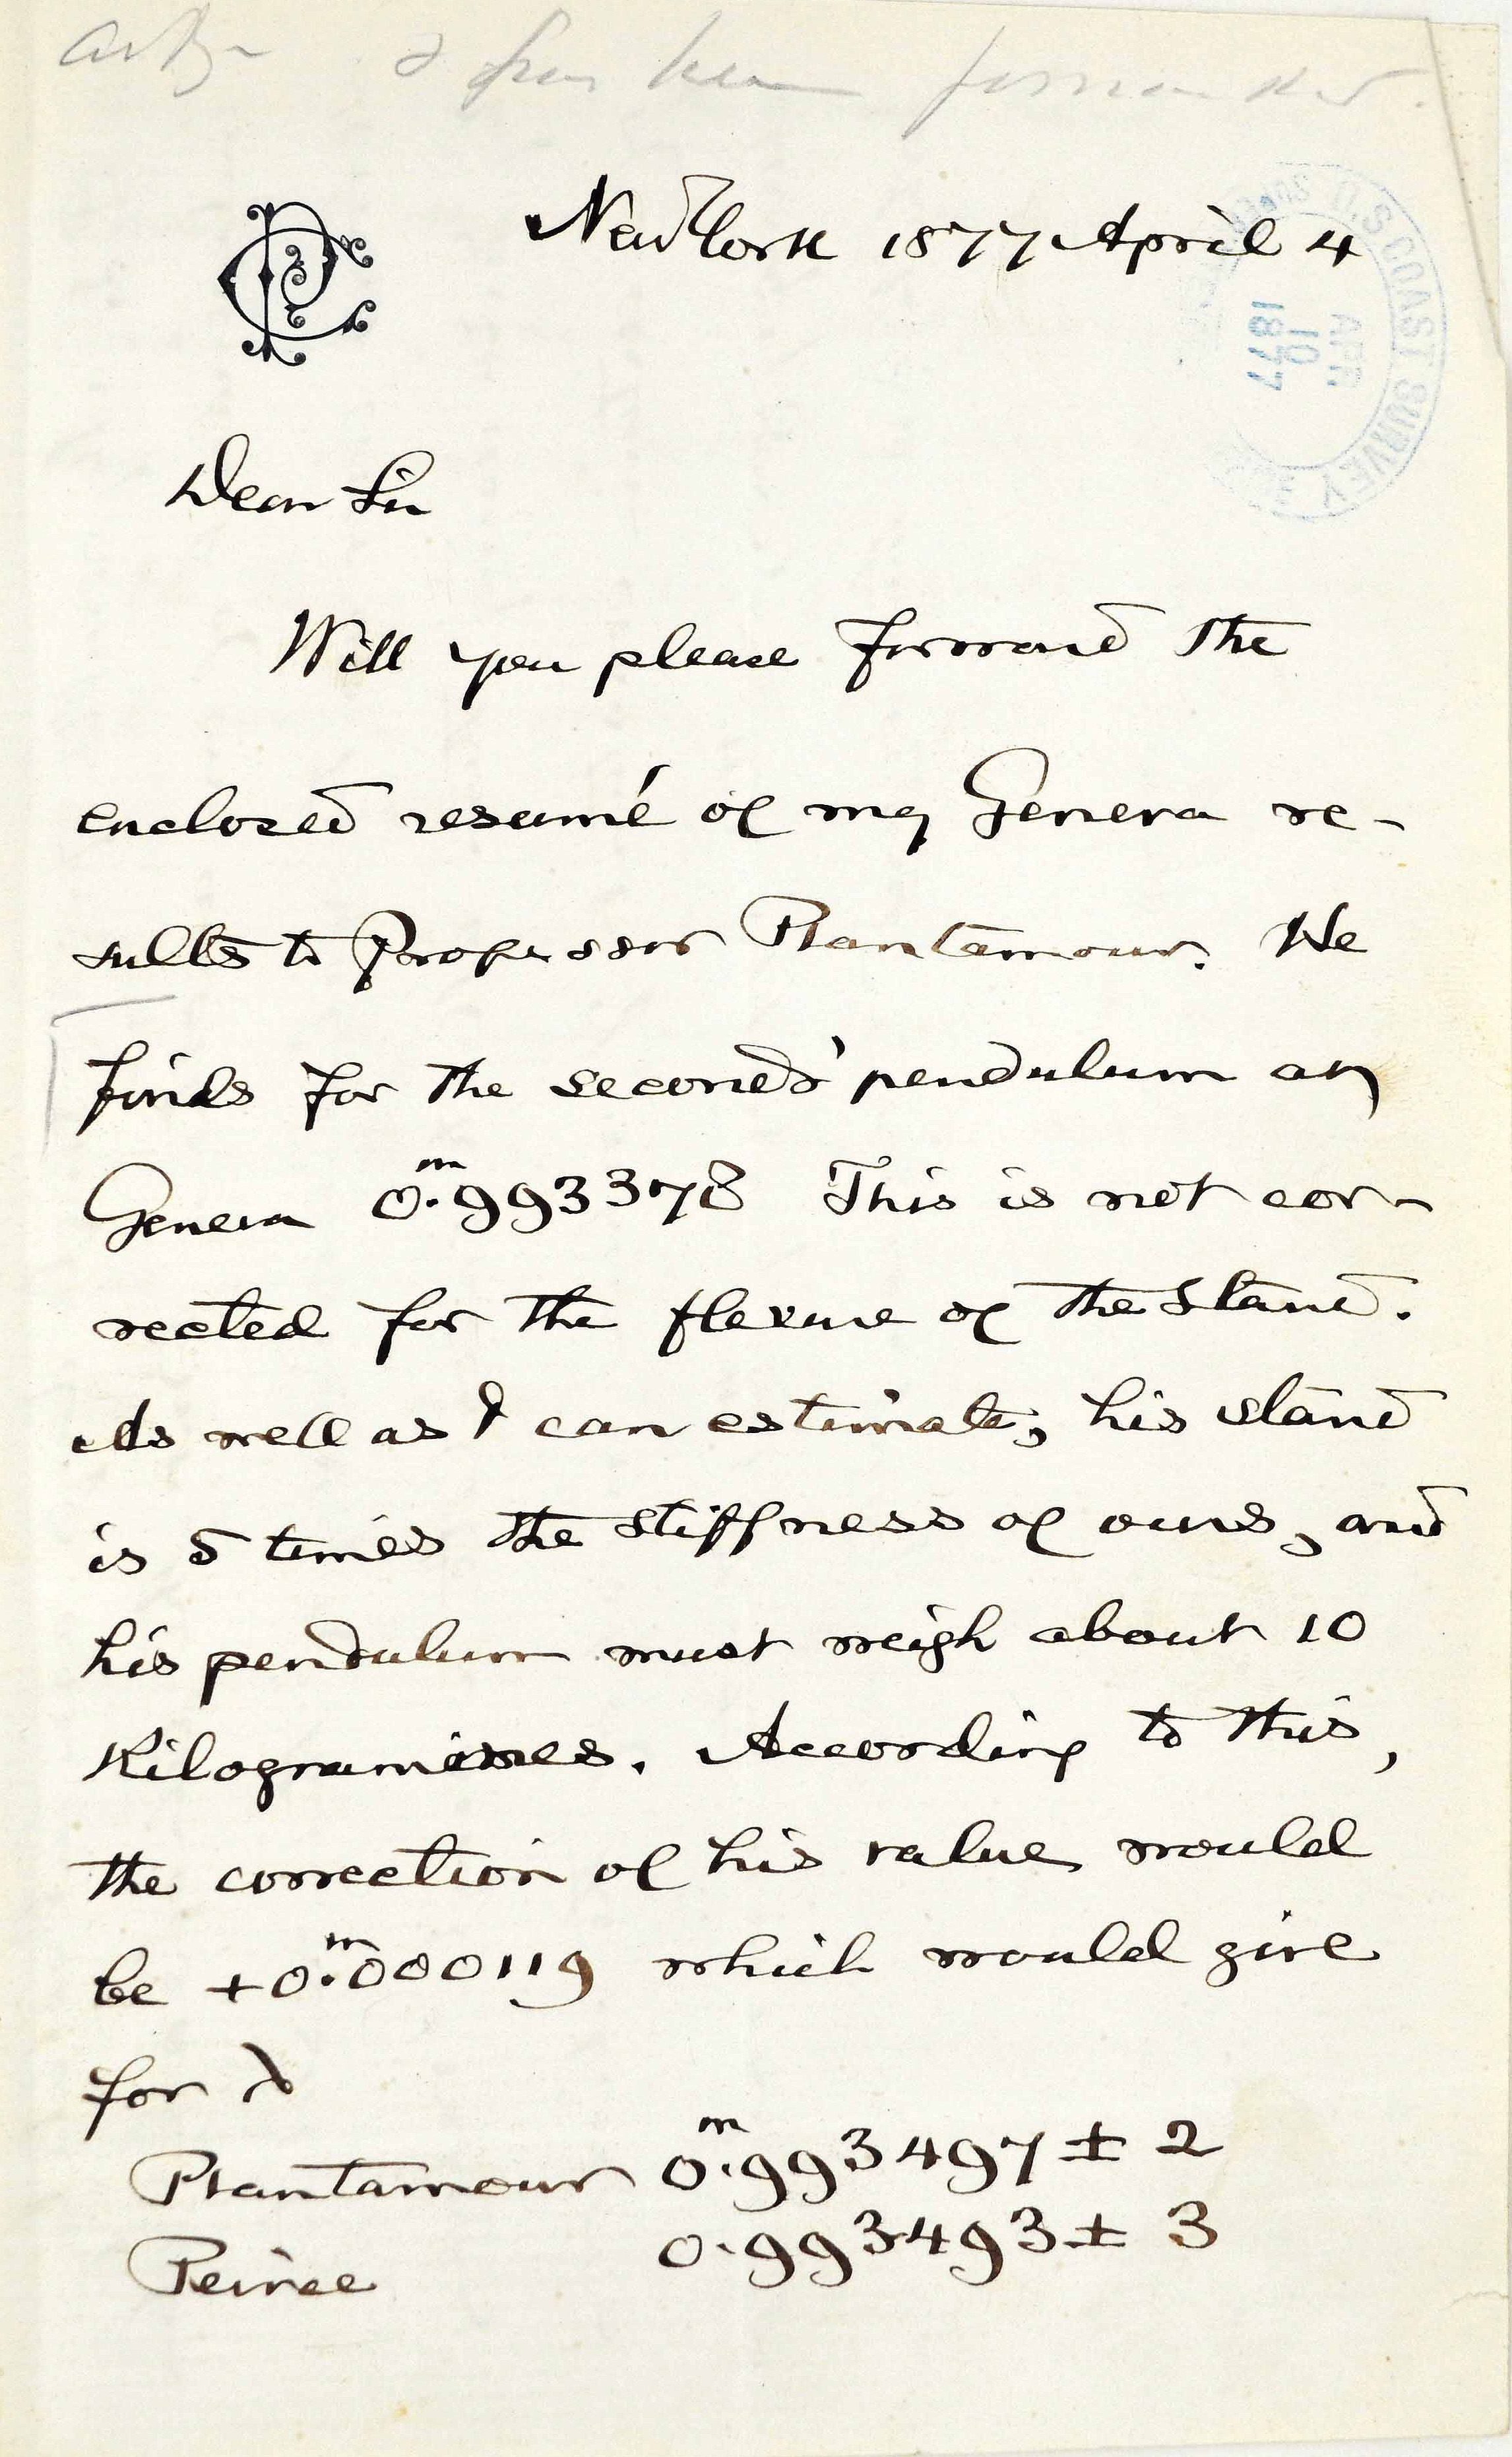 CP
New York 1877 April 4
U.S. COAST SURVEY
APR
10
1877
Dear Sir
Will you please forward the
enclosed resumé of my Geneva re-
sults to Professor Plantamour. He
finds for the seconds' pendulum at
Geneva 0.ᵐ993378 This is not cor-
rected for the flexure of the stand.
As well as I can estimate, his stand
is 5 times the stiffness of ours, and
his pendulum must weigh about 10
Kilogrammes. According to this,
the correction of his value would
be +0.ᵐ000119 which would give
for λ
Plantamour 0.ᵐ993497 ± 2
Peirce 0.993493 ± 3